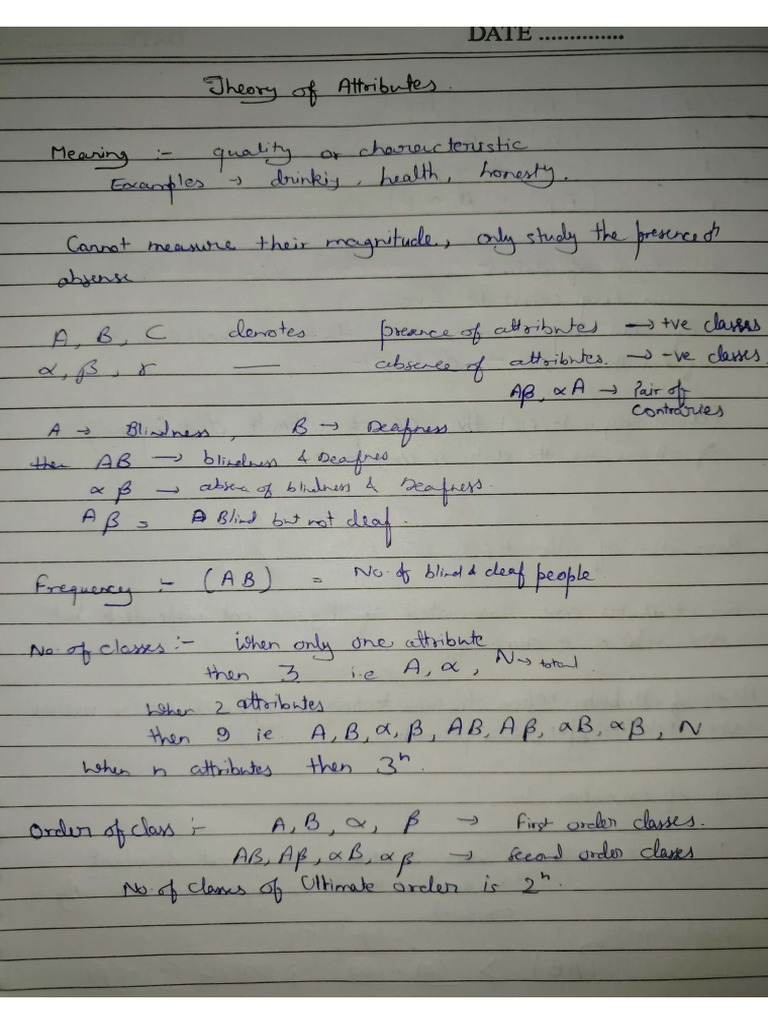 DATE ..............
Theory of Attributes.
Meaning :- quality or characteristic
Examples → drinkig, health, honesty.
Cannot measure their magnitude, only study the presence or
absense
A, B, C denotes presence of attributes → +ve classes
α, β, γ —— absence of attributes. → -ve classes.
Aβ, αA → Pair of
Contraries
A → Blindness, B → Deafness.
then AB → blindness & Deafnes
α β → absence of blindness & Deafness.
A β = A Blind but not deaf.
Frequency :- (AB) = No. of blind & deaf people
No. of classes :- When only one attribute
then 3 i.e A, α, N → total
When 2 attributes
then 9 ie A, B, α, β, AB, Aβ, αB, αβ, N
When n attributes then 3ⁿ.
Order of class :- A, B, α, β → First order classes.
AB, Aβ, αB, αβ → Second order classes
No. of classes of Ultimate order is 2ⁿ.